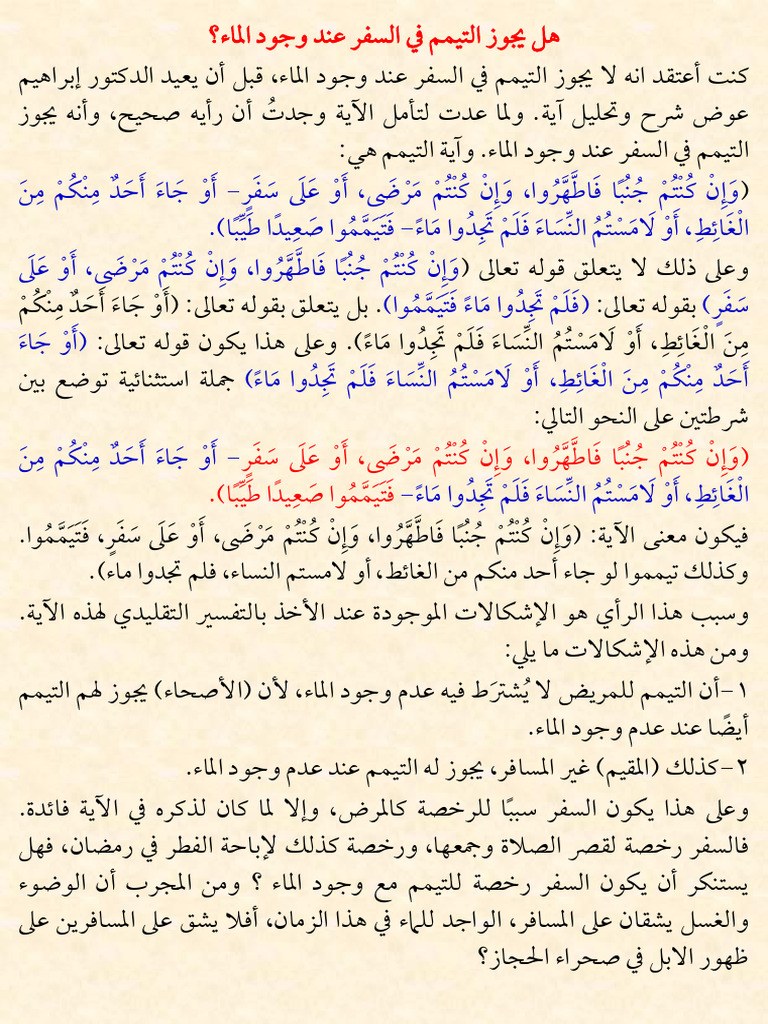 هل يجوز التيمم في السفر عند وجود الماء؟
كنت أعتقد انه لا يجوز التيمم في السفر عند وجود الماء، قبل أن يعيد الدكتور إبراهيم
عوض شرح وتحليل آية. ولما عدت لتأمل الآية وجدتُ أن رأيه صحيح، وأنه يجوز
التيمم في السفر عند وجود الماء. وآية التيمم هي:
(وَإِنْ كُنْتُمْ جُنُبًا فَاطَّهَّرُوا، وَإِنْ كُنْتُمْ مَرْضَى، أَوْ عَلَى سَفَرٍ– أَوْ جَاءَ أَحَدٌ مِنْكُمْ مِنَ
الْغَائِطِ، أَوْ لَامَسْتُمُ النِّسَاءَ فَلَمْ تَجِدُوا مَاءً– فَتَيَمَّمُوا صَعِيدًا طَيِّبًا).
وعلى ذلك لا يتعلق قوله تعالى (وَإِنْ كُنْتُمْ جُنُبًا فَاطَّهَّرُوا، وَإِنْ كُنْتُمْ مَرْضَى، أَوْ عَلَى
سَفَرٍ) بقوله تعالى: (فَلَمْ تَجِدُوا مَاءً فَتَيَمَّمُوا). بل يتعلق بقوله تعالى: (أَوْ جَاءَ أَحَدٌ مِنْكُمْ
مِنَ الْغَائِطِ، أَوْ لَامَسْتُمُ النِّسَاءَ فَلَمْ تَجِدُوا مَاءً). وعلى هذا يكون قوله تعالى: (أَوْ جَاءَ
أَحَدٌ مِنْكُمْ مِنَ الْغَائِطِ، أَوْ لَامَسْتُمُ النِّسَاءَ فَلَمْ تَجِدُوا مَاءً) جملة استثنائية توضع بين
شرطتين على النحو التالي:
(وَإِنْ كُنْتُمْ جُنُبًا فَاطَّهَّرُوا، وَإِنْ كُنْتُمْ مَرْضَى، أَوْ عَلَى سَفَرٍ– أَوْ جَاءَ أَحَدٌ مِنْكُمْ مِنَ
الْغَائِطِ، أَوْ لَامَسْتُمُ النِّسَاءَ فَلَمْ تَجِدُوا مَاءً– فَتَيَمَّمُوا صَعِيدًا طَيِّبًا).
فيكون معنى الآية: (وَإِنْ كُنْتُمْ جُنُبًا فَاطَّهَّرُوا، وَإِنْ كُنْتُمْ مَرْضَى، أَوْ عَلَى سَفَرٍ، فَتَيَمَّمُوا.
وكذلك تيمموا لو جاء أحد منكم من الغائط، أو لامستم النساء، فلم تجدوا ماء).
وسبب هذا الرأي هو الإشكالات الموجودة عند الأخذ بالتفسير التقليدي لهذه الآية.
ومن هذه الإشكالات ما يلي:
١–أن التيمم للمريض لا يُشترَط فيه عدم وجود الماء، لأن (الأصحاء) يجوز لهم التيمم
أيضًا عند عدم وجود الماء.
٢–كذلك (المقيم) غير المسافر، يجوز له التيمم عند عدم وجود الماء.
وعلى هذا يكون السفر سببًا للرخصة كالمرض، وإلا لما كان لذكره في الآية فائدة.
فالسفر رخصة لقصر الصلاة وجمعها، ورخصة كذلك لإباحة الفطر في رمضان، فهل
يستنكر أن يكون السفر رخصة للتيمم مع وجود الماء ؟ ومن المجرب أن الوضوء
والغسل يشقان على المسافر، الواجد للماء في هذا الزمان، أفلا يشق على المسافرين على
ظهور الابل في صحراء الحجاز؟